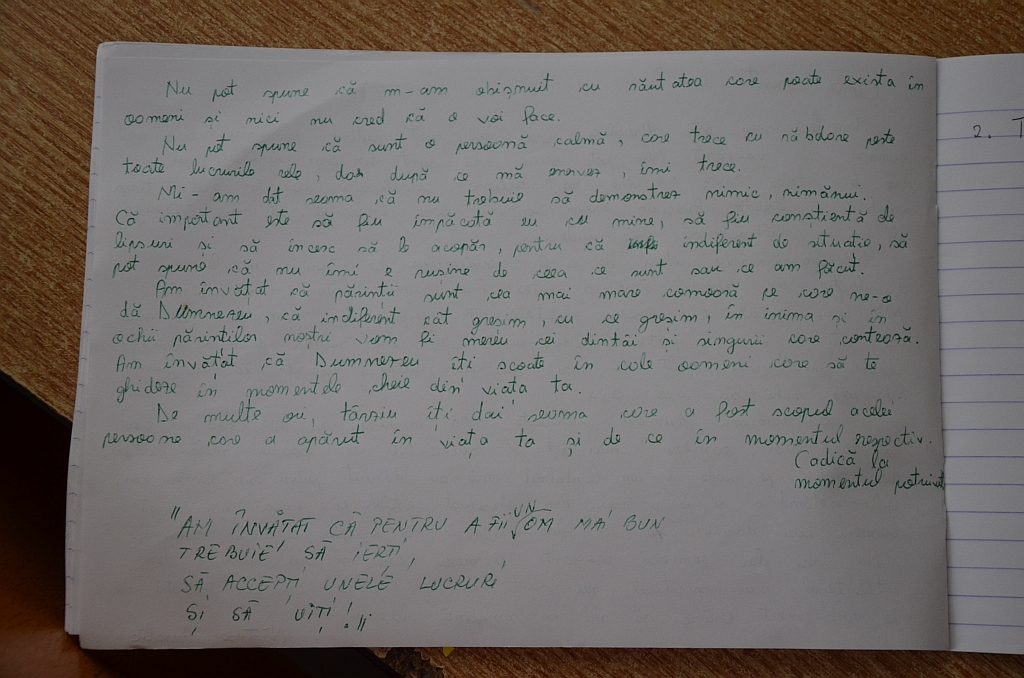 Nu pot spune că m-am obișnuit cu răutatea care poate exista în
oameni și nici nu cred că o voi face.
Nu pot spune că sunt o persoană calmă, care trece cu năbdare peste
toate lucrurile rele, dar după ce mă enervez, îmi trece.
Mi-am dat seama că nu trebuie să demonstrez nimic, nimănui.
Că important este să fiu împăcată eu cu mine, să fiu conștientă de
lipsuri și să încerc să le acopăr, pentru că indiferent de situație, să
pot spune că nu îmi e rușine de ceea ce sunt sau ce am făcut.
Am învățat că părinții sunt cea mai mare comoară pe care ne-o
dă Dumnezeu, că indiferent cât greșim, cu ce greșim, în inima și în
ochii părinților noștri vom fi mereu cei dintâi și singurii care contează.
Am învățat că Dumnezeu îți scoate în cale oameni care să te
ghideze în momentele cheie din viața ta.
De multe ori, târziu îți dai seama care a fost scopul acelei
persoane care a apărut în viața ta și de ce în momentul respectiv.
(adică la
momentul potrivit
"AM ÎNVĂȚAT CĂ PENTRU A FII UN OM MAI BUN
TREBUIE SĂ IERȚI,
SĂ ACCEPȚI UNELE LUCRURI
ȘI SĂ UIȚI!"
2. T